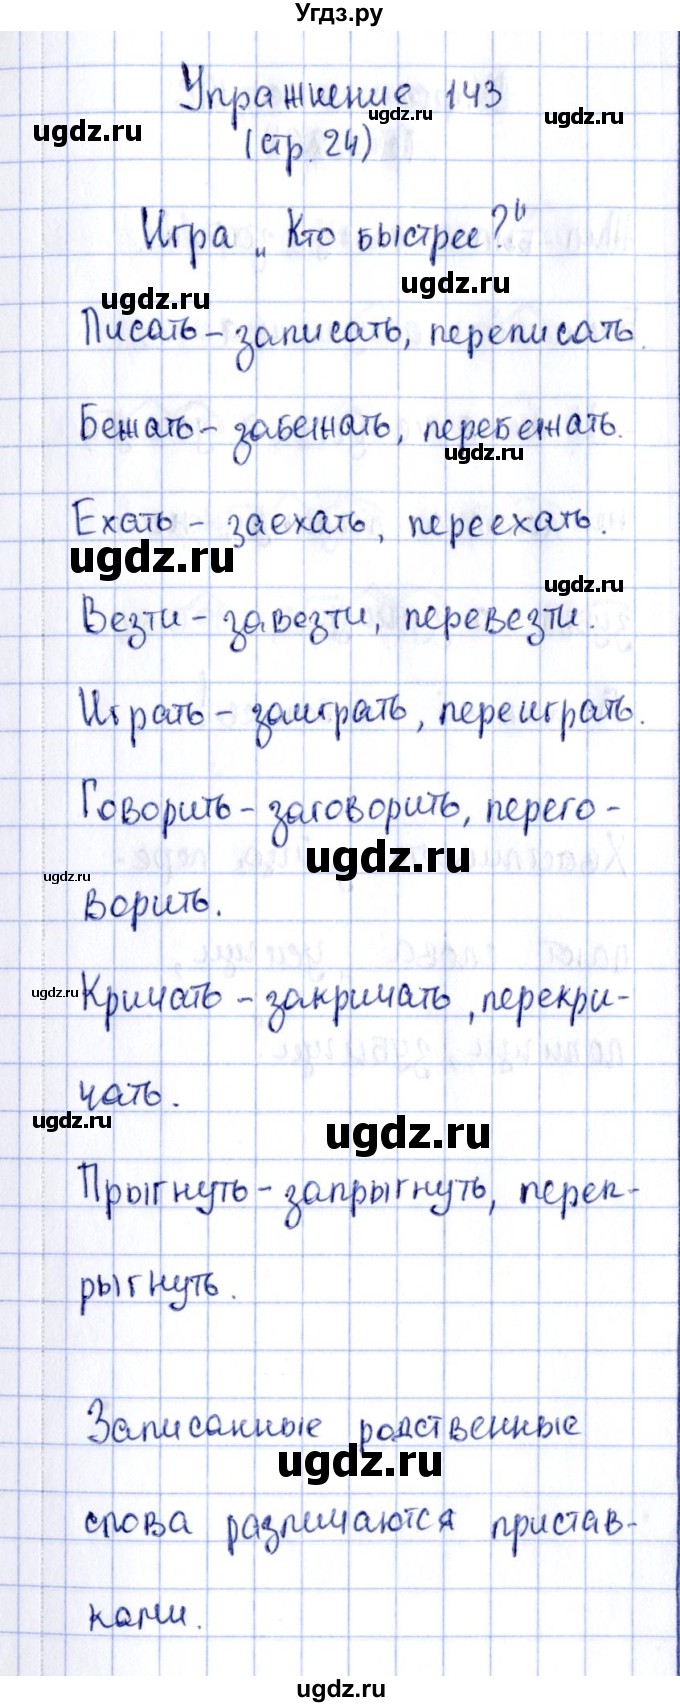 Угдз.ру
Упражнение 143
ugdz.ru
ugdz.ru
ugdz.ru
(стр. 24)
Игра „Кто быстрее?"
ugdz.ru
ugdz.ru
Писать – записать, переписать.
Бежать – забежать, перебежать.
ugdz.ru
Ехать – заехать, переехать.
ugdz.ru
ugdz.ru
Везти – завезти, перевезти.
Играть – заиграть, переиграть.
Говорить – заговорить, перего-
ugdz.ru
ugdz.ru
ворить.
ugdz.ru
Кричать – закричать, перекри-
чать.
ugdz.ru
ugdz.ru
Прыгнуть – запрыгнуть, переп-
рыгнуть.
Записанные родственные
ugdz.ru
слова различаются пристав-
ками.
ugdz.ru